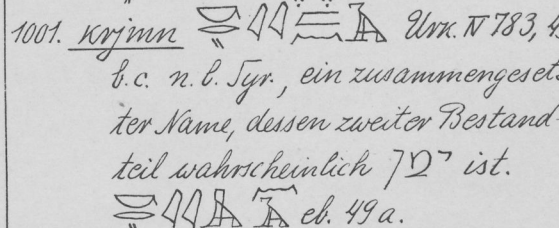 1001. krjmn Urk. IV 783,
b.c. n.l. Syr., ein zusammengeset
ter Name, dessen zweiter Bestand-
teil wahrscheinlich ימן ist.
eb. 49a.